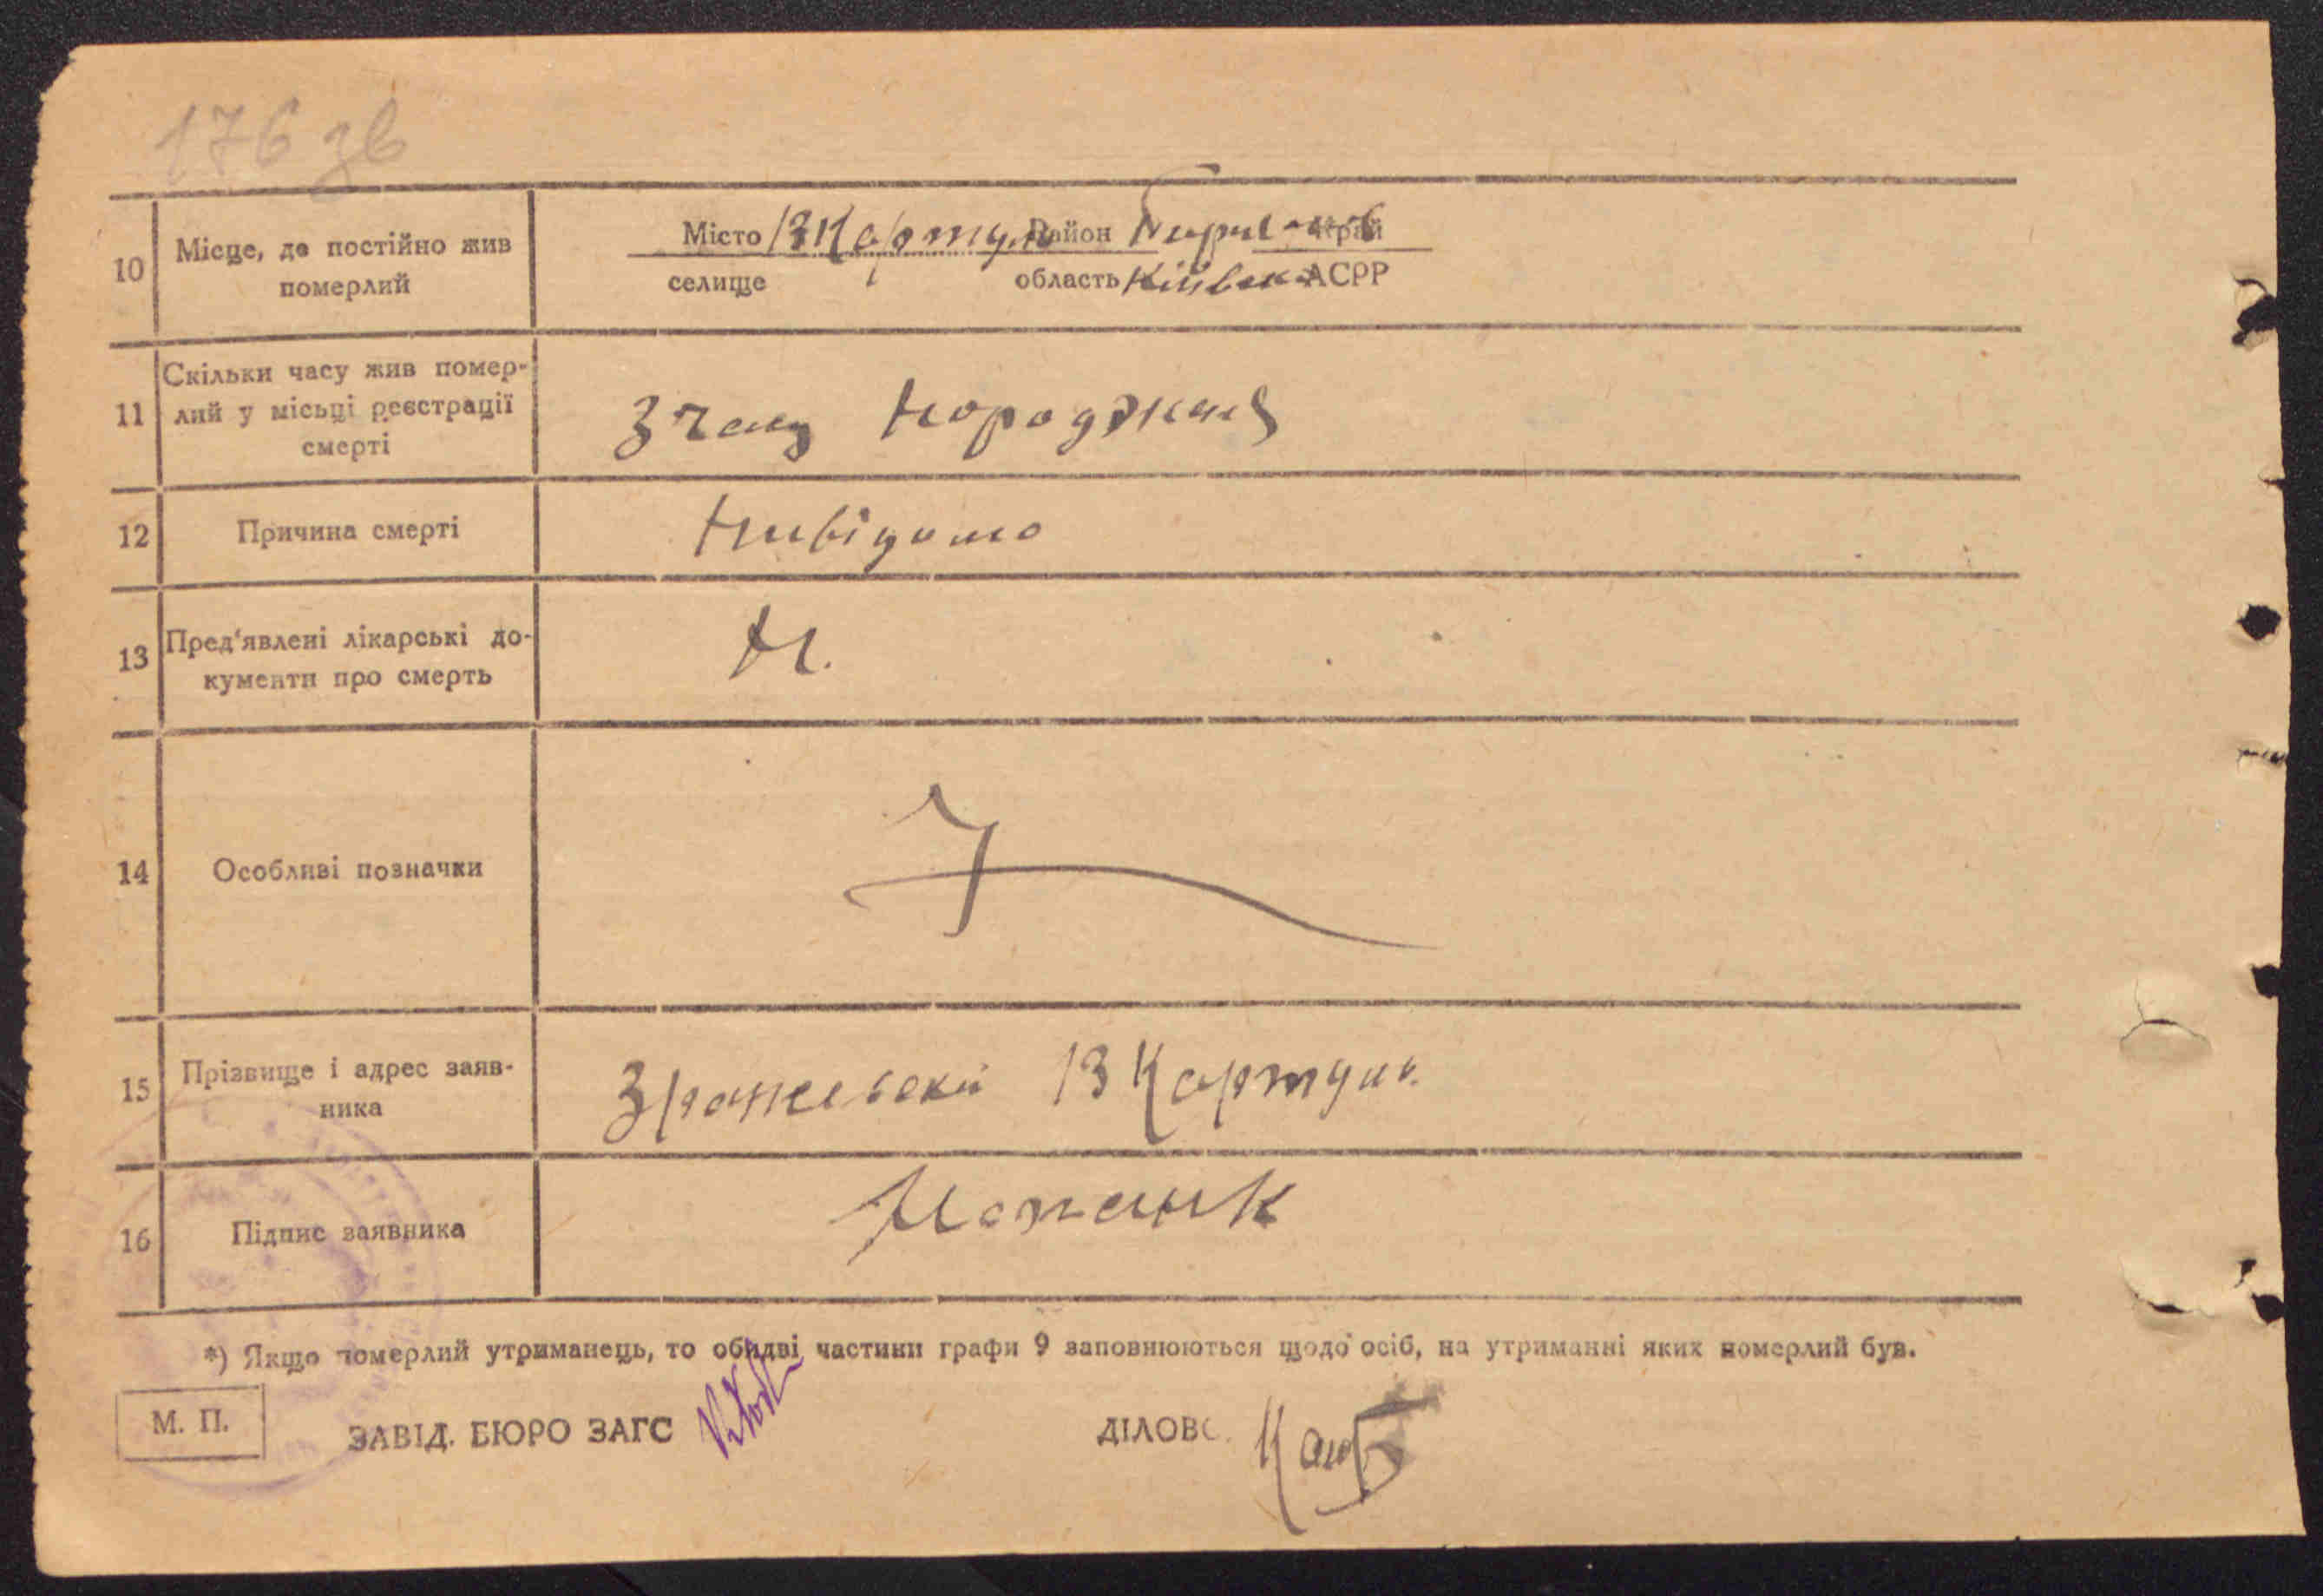 176 зв
10 Місце, де постійно жив померлий
Місто В Каратуль Район край
селище область Київськ АСРР
11 Скільки часу жив помер-
лий у місьці реєстрації
смерті
З часу народження
12 Причина смерті
Невідомо
13 Пред'явлені лікарські до-
кументи про смерть
Н.
14 Особливі позначки
15 Прізвище і адрес заяв-
ника
В Каратул
16 Підпис заявника
*) Якщо померлий утриманець, то обидві частини графи 9 заповнюються щодо осіб, на утриманні яких померлий був.
М. П.
ЗАВІД. БЮРО ЗАГС
ДІЛОВ.